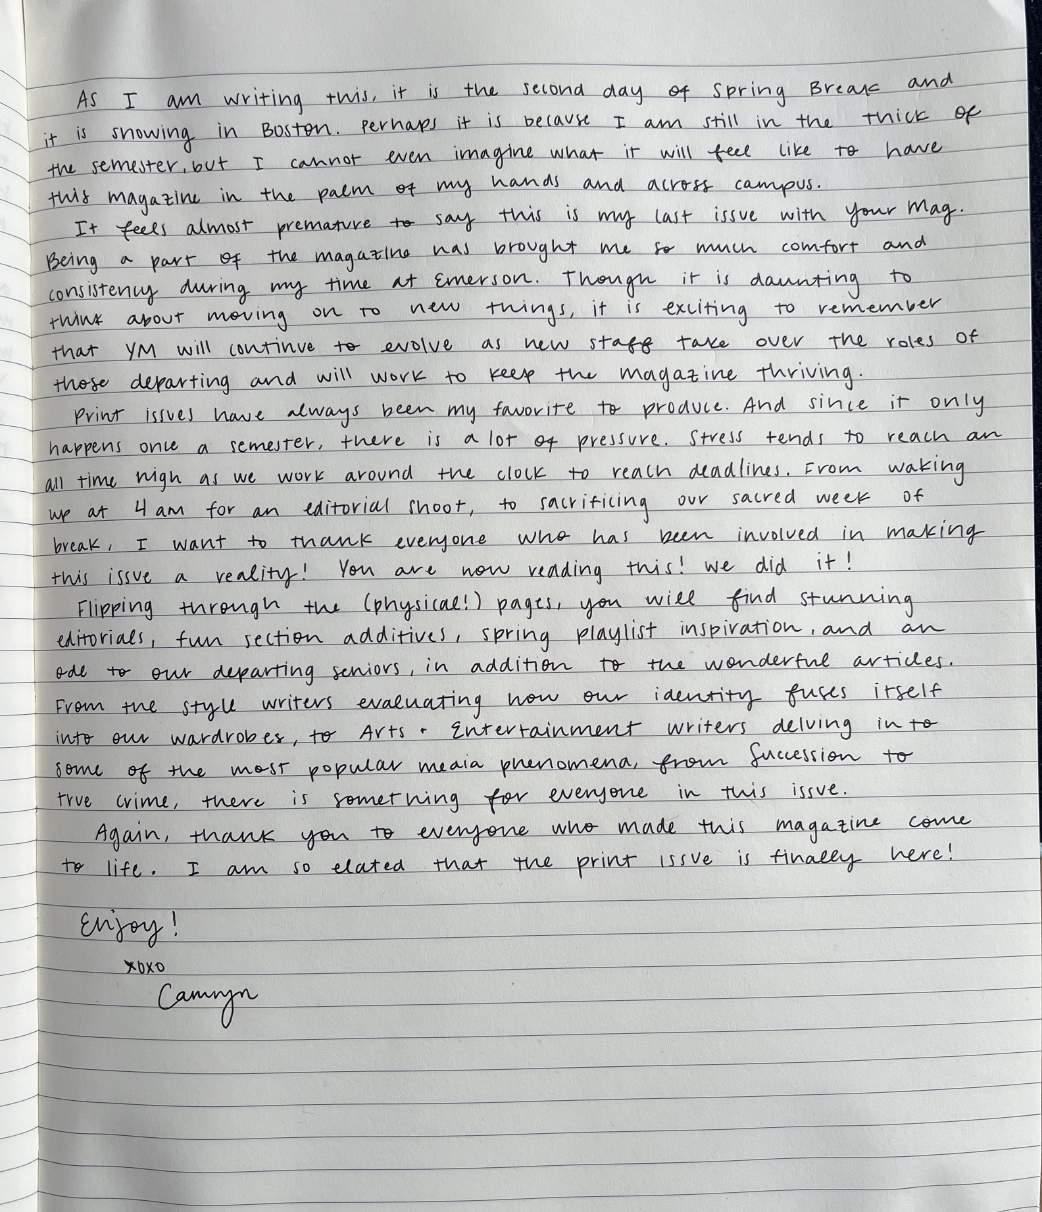 As I am writing this, it is the second day of Spring Break and
it is snowing in Boston. Perhaps it is because I am still in the thick of
the semester, but I cannot even imagine what it will feel like to have
this magazine in the palm of my hands and across campus.
It feels almost premature to say this is my last issue with Your Mag.
Being a part of the magazine has brought me so much comfort and
consistency during my time at Emerson. Though it is daunting to
think about moving on to new things, it is exciting to remember
that YM will continue to evolve as new staff take over the roles of
those departing and will work to keep the magazine thriving.
Print issues have always been my favorite to produce. And since it only
happens once a semester, there is a lot of pressure. Stress tends to reach an
all time high as we work around the clock to reach deadlines. From waking
up at 4 am for an editorial shoot, to sacrificing our sacred week of
break, I want to thank everyone who has been involved in making
this issue a reality! You are now reading this! We did it!
Flipping through the (physical!) pages, you will find stunning
editorials, fun section additives, spring playlist inspiration, and an
ode to our departing seniors, in addition to the wonderful articles.
From the style writers evaluating how our identity fuses itself
into our wardrobes, to Arts + Entertainment writers delving into
some of the most popular media phenomena, from Succession to
true crime, there is something for everyone in this issue.
Again, thank you to everyone who made this magazine come
to life. I am so elated that the print issue is finally here!
Enjoy!
xoxo
Camryn